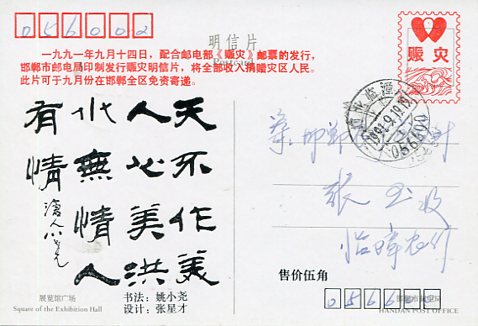 056002
明信片
赈灾
一九九一年九月十四日，配合邮电部《赈灾》邮票的发行，
邯郸市邮电局印制发行赈灾明信片，将全部收入捐赠灾区人民。
此片可于九月份在邯郸全区免资寄递。
天不作美
人心美洪
水無情人
有情
邯郸
张玉 收
售价伍角
展览馆广场
Square of the Exhibition Hall
书法：姚小尧
设计：张星才
HANDAN POST OFFICE